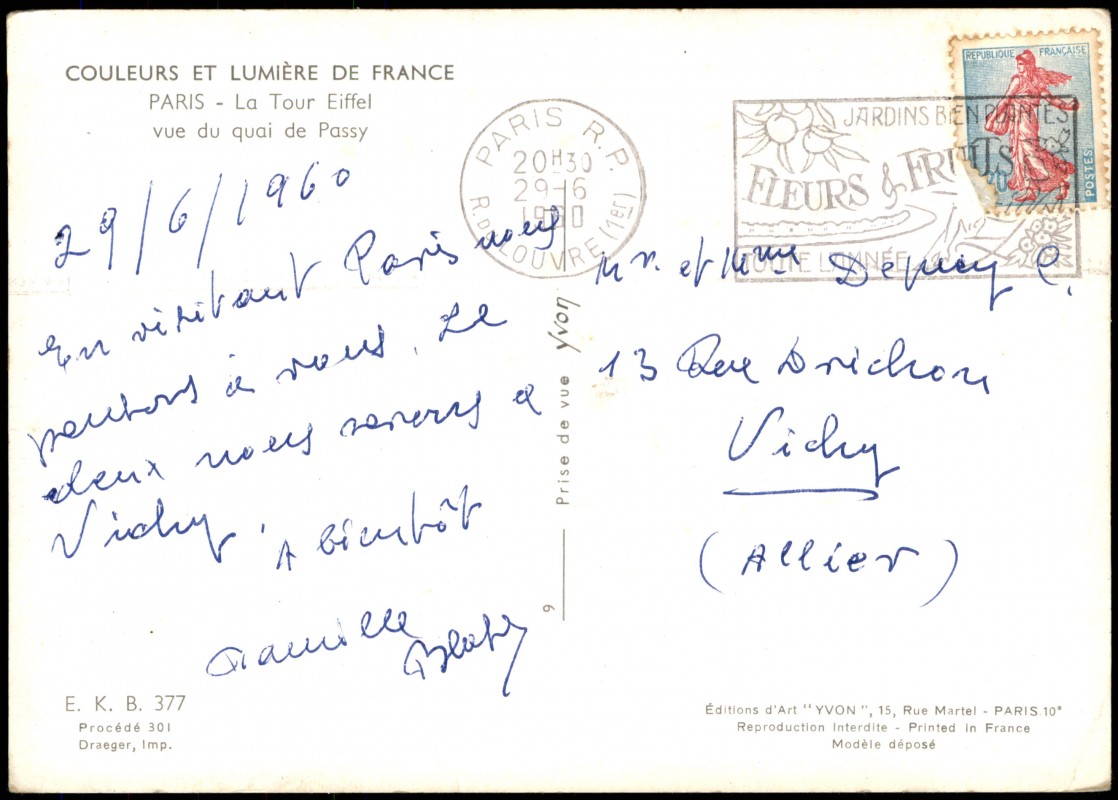 COULEURS ET LUMIÈRE DE FRANCE
PARIS - La Tour Eiffel
vue du quai de Passy
29/6/1960
En visitant Paris nous
pensons à vous. Le
deux nous serons a
Vichy. A bientôt
Famille
E. K. B. 377
Procédé 301
Draeger, Imp.
9
Prise de vue Yvon
PARIS R.P.
20H30
29-6
1960
R. DU LOUVRE (1er)
JARDINS BIEN PLANTÉS
FLEURS & FRUITS
TOUTE L'ANNÉE
REPUBLIQUE FRANÇAISE
POSTES
Mr. et Mme Depuy C.
13 Rue Drichon
Vichy
(Allier)
Éditions d'Art "YVON", 15, Rue Martel - PARIS 10e
Reproduction Interdite - Printed in France
Modèle déposé